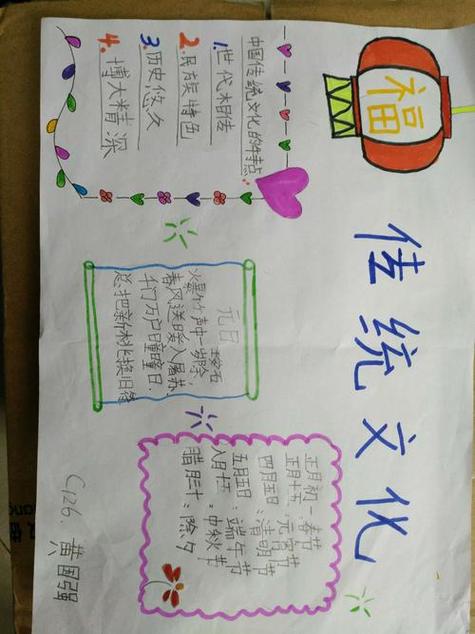 福
传统文化
中国传统文化的特点:
1.世代相传
2.民族特色
3.历史悠久
4.博大精深
元日
王安石
爆竹声中一岁除,
春风送暖入屠苏.
千门万户曈曈日.
总把新桃换旧符
正月初一:春节
正月十五:元宵节
四月五日:清明节
五月五日:端午节
八月十五:中秋节
腊月三十:除夕
C126. 黄国强